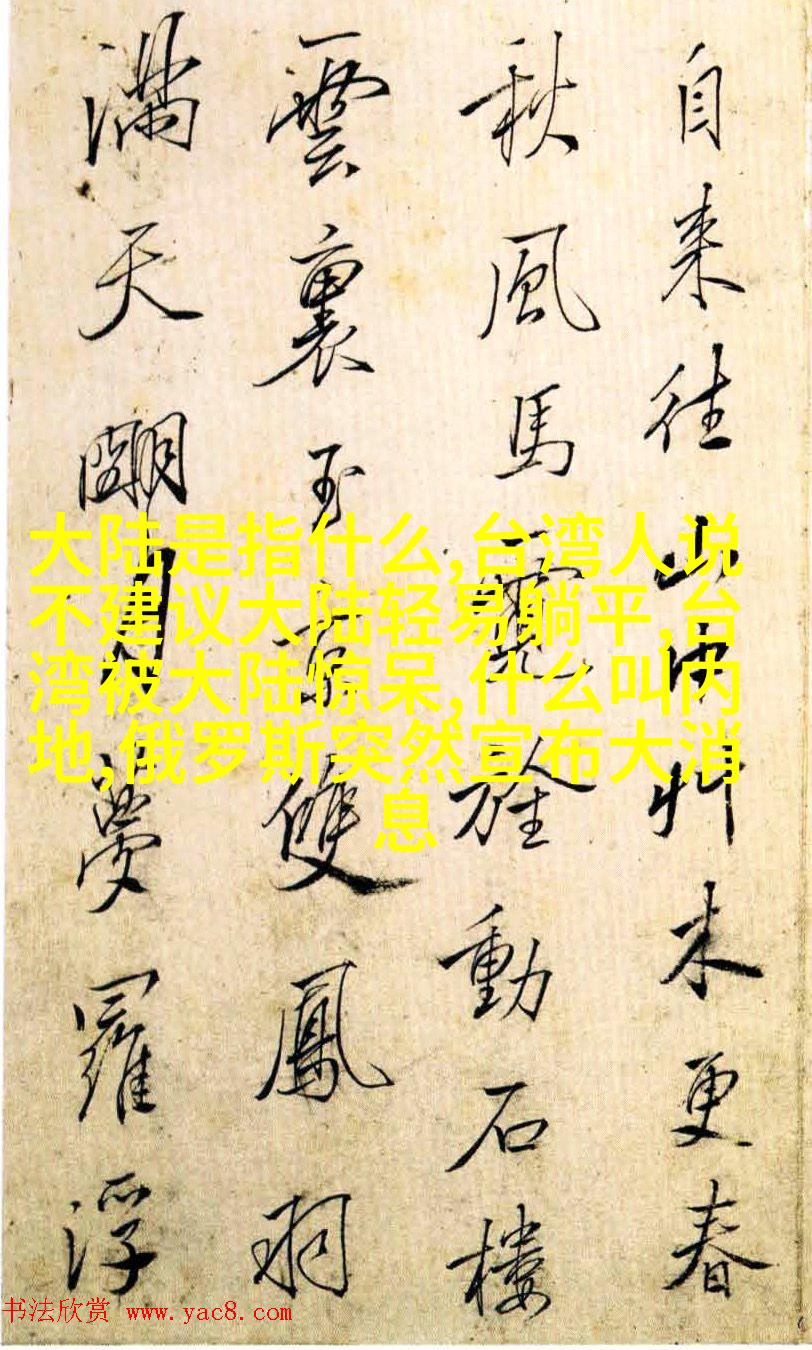 自来往山中艸木更春
秋風馬靈旌動石樓
雲裏玉京雙鳳羽
滿天月夢羅浮
大陆是指什么,台湾人说
不建议大陆轻易躺平,台
湾被大陆惊呆,什么叫内
地,俄罗斯突然宣布大消
息
书法欣赏 www.yac8.com